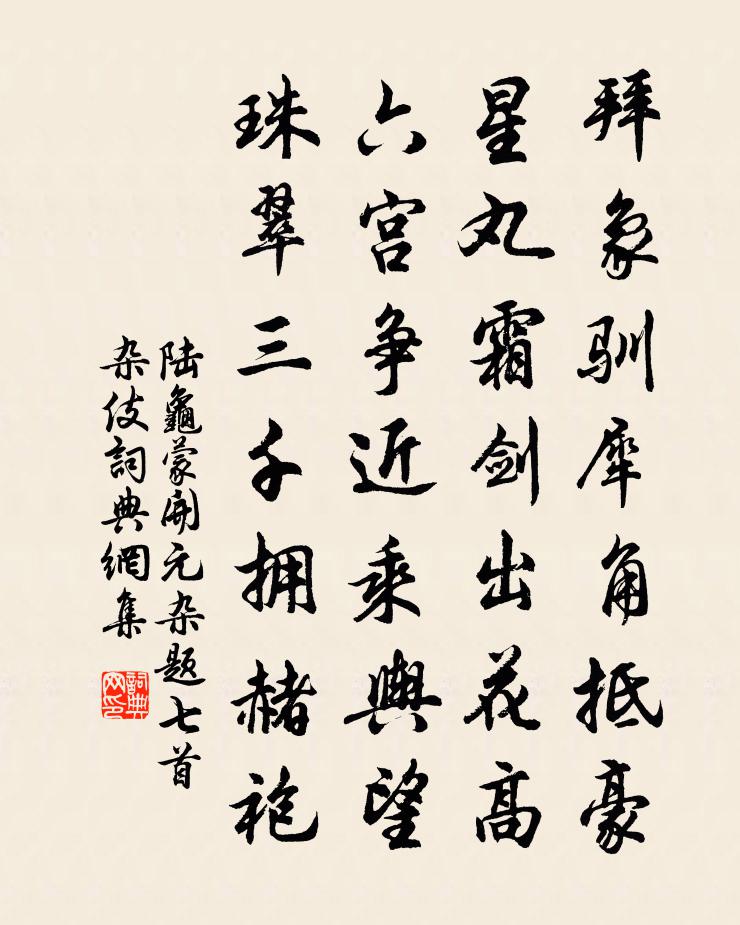 拜象驯犀角抵豪
星丸霜剑出花高
六宫争近乘輿望
珠翠三千拥赭袍
陆龜蒙開元杂题七首
杂伎詞典網集
詞典网印